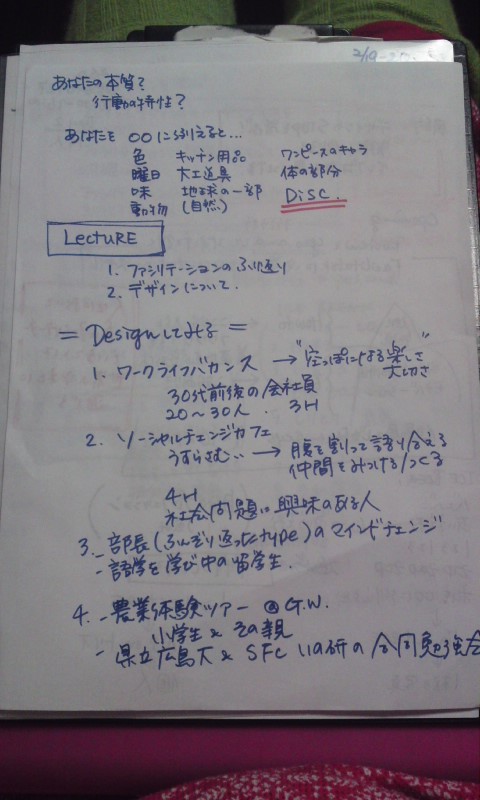 2/19
あなたの本質?
行動の特性?
あなたを ○○にふりえると…
色 キッチン用品 ワンピースのキャラ
曜日 大工道具 体の部分
味 地球の一部 DiSC.
動物 (自然)
LECTURE
1. ファシリテーションのふり返り
2. デザインについて.
= Designしてみる =
1. ワークライフバランス → "空っぽになる楽しさ
大切さ"
30代前後の会社員
20～30人. 3H
2. ソーシャルチェンジカフェ
うすらさむ… → 腹を割って語り合える
仲間をみつける/つくる
4H
社会問題に興味のある人
3. - 部長(ふんぞり返ったtype)のマインドチェンジ
- 語学を学び中の留学生.
4. - 農業体験ツアー @G.W.
小学生 & その親
- 県立広島大 & SFC 研の合同勉強会